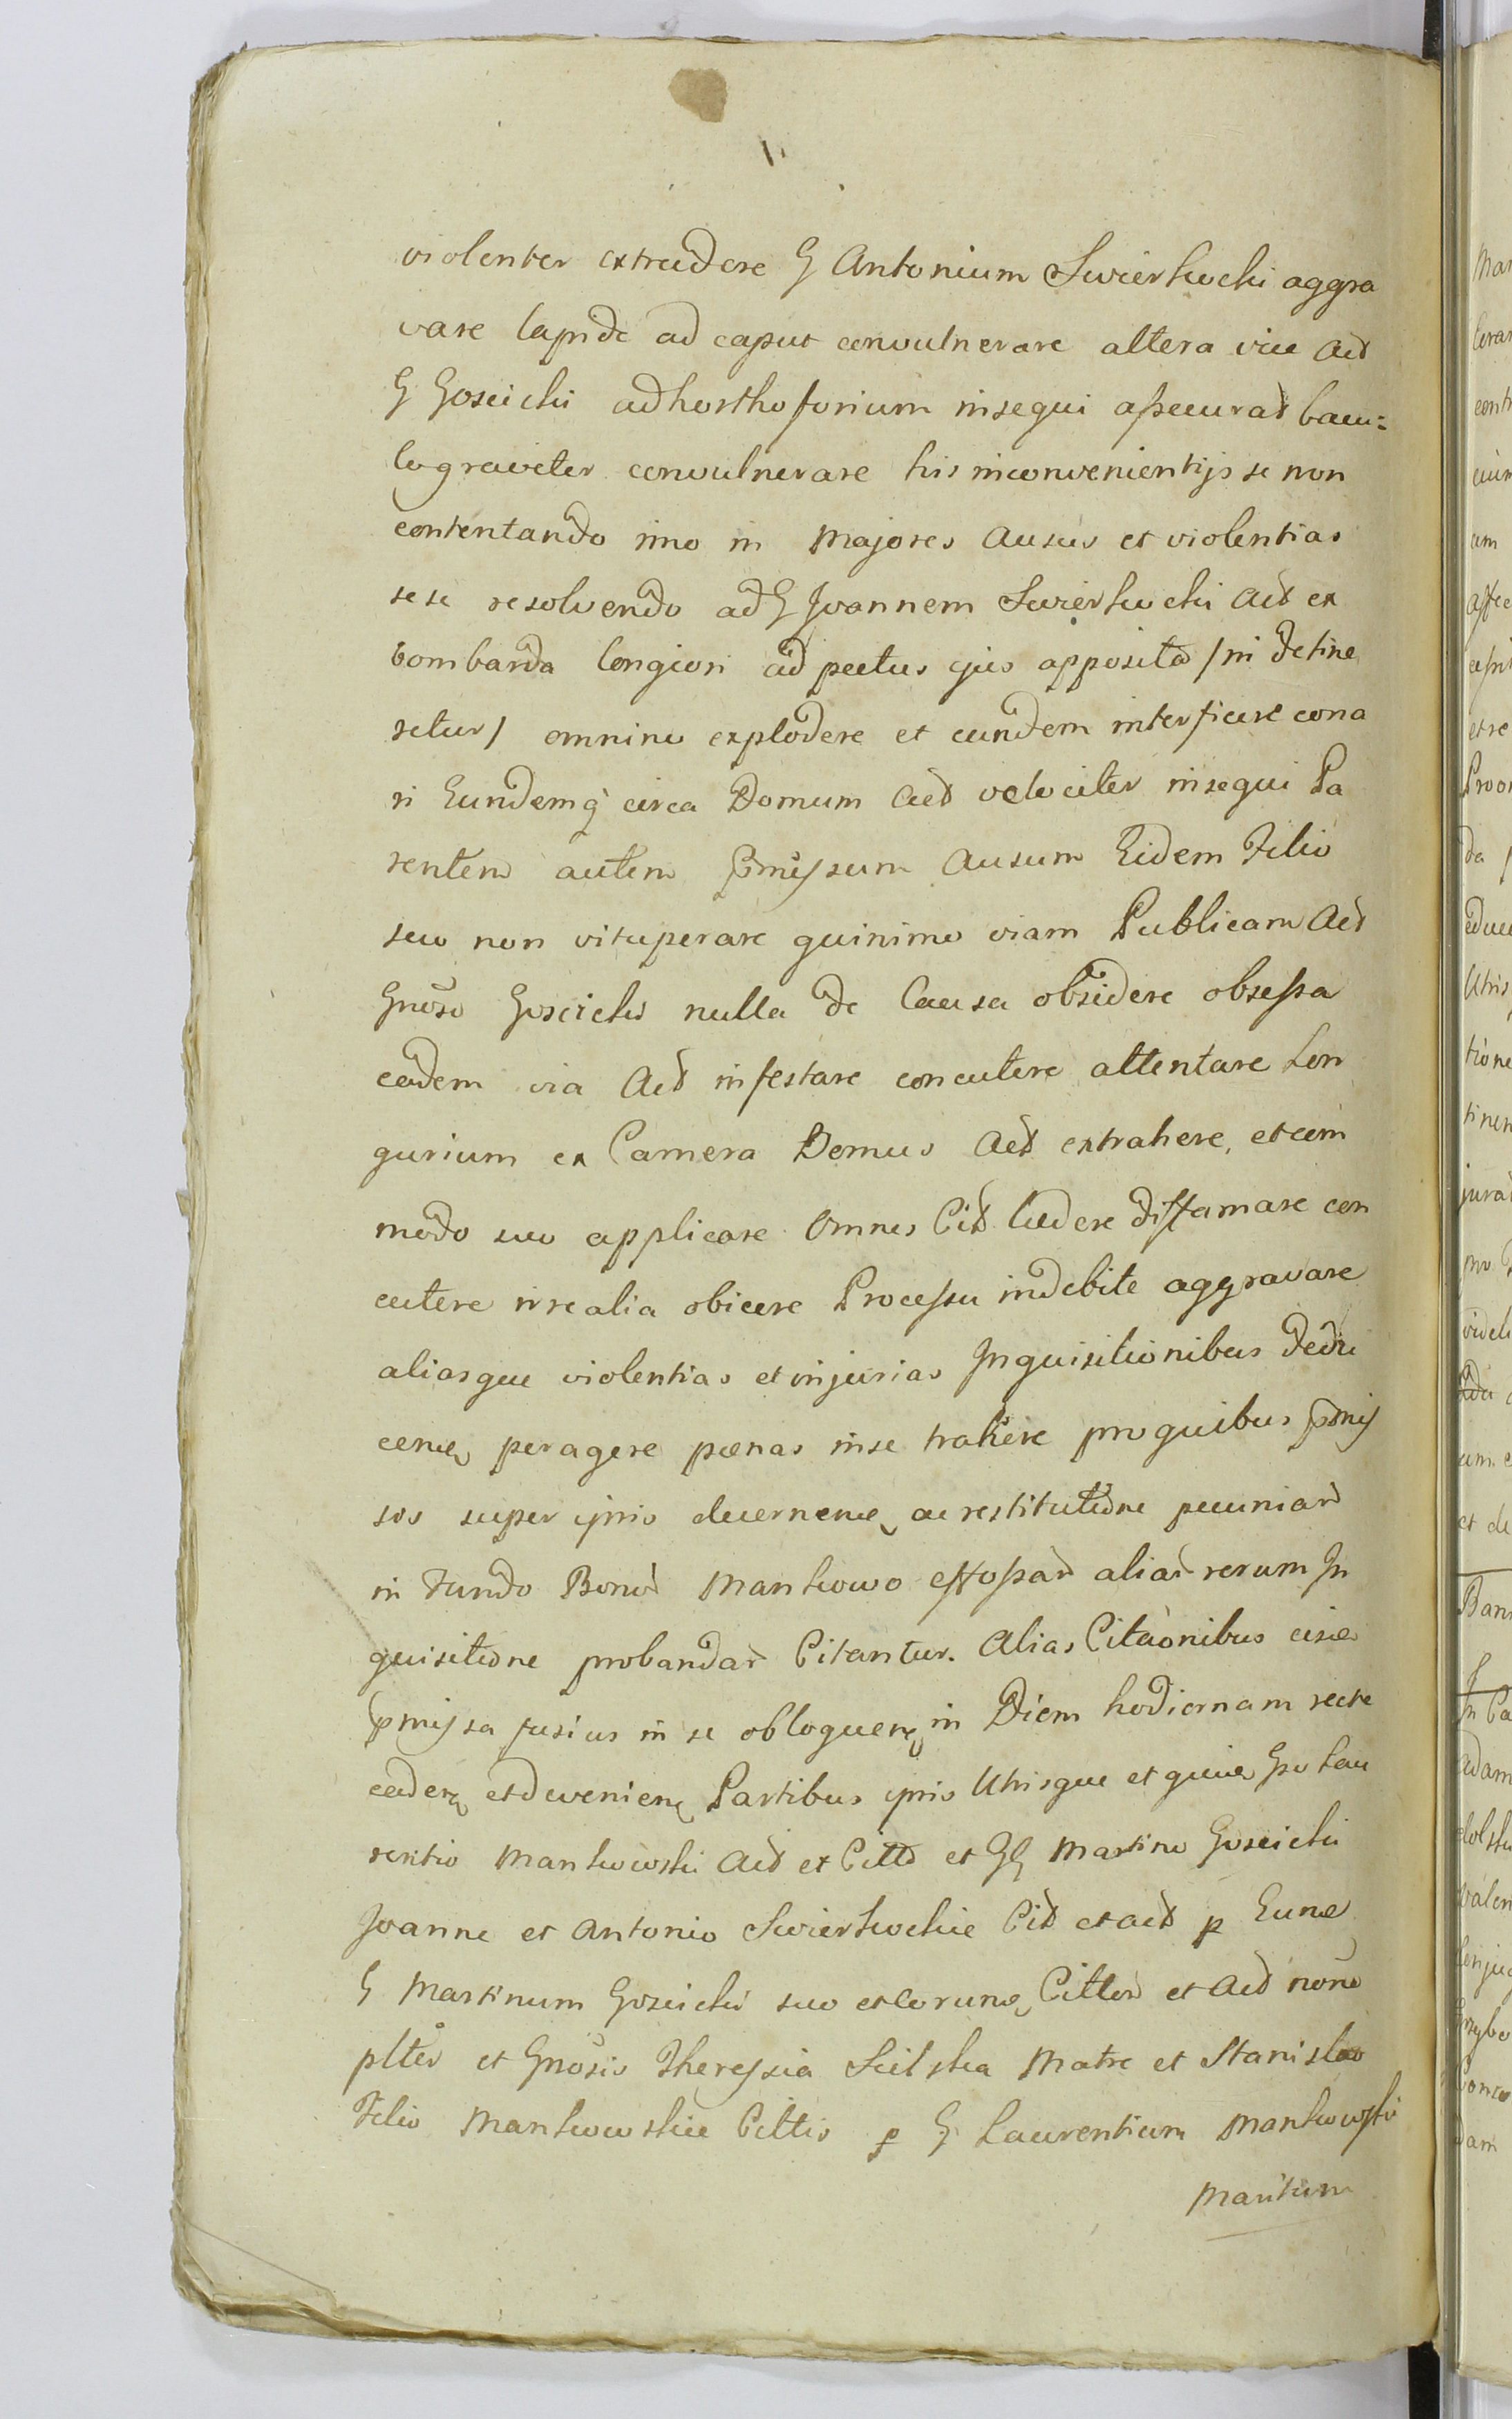 violenter extrudere G Antonium Swierkocki aggra
vare lapide ad caput convulnerare altera vice Act
G Goscicki ad horthoforium insequi assecurat bacu=
lo graviter convulnerare his inconvenientijs se non
contentando imo in Majores Ausus et violentias
sese resolvendo ad G Joannem Swierkocki Act ex
bombarda longiori ad pectus ejus apposita /ni detine
retur/ omnino explodere et eundem interficere cona
ri Eundemq circa Domum Act velociter insequi Pa
rentem autem pmissum Ausum Eidem Filio
suo non vituperare quinimo viam Publicam Act
Gnoso Goscicki nulla de Causa obsidere obsessa
eadem via Act infestare concutere attentare Lon
gurium ex Camera Domus Act extrahere, et com
modo suo applicare Omnes Cit laedere diffamare con
cutere irrealia obicere Processu indebite aggravare
aliasque violentias et injurias Inquisitionibus dedu
cen peragere poenas in se trahere pro quibus pmis
sos super ipsis decernen ac restitutione pecuniar
in Fundo Bonor Mankowo effossar aliar rerum In
quisitione probandar Citantur. Alias Citaonibus circa
pmissa fusius in se obloquen in Diem hodiernam recte
caden et devenien Partibus ipsis Utrisque et quidem Gso Lau
rentio Mankowski Act et Citto et GG Martino Goscicki
Joanne et Antonio Swierkockie Cit et act p Eund
G Martinum Goscicki suo et eorund Cittor et Act noie
plter et Gnosis Theressia Sielska Matre et Stanislao
Filio Mankowskie Cittis p G Laurentium Mankowski
Maritum